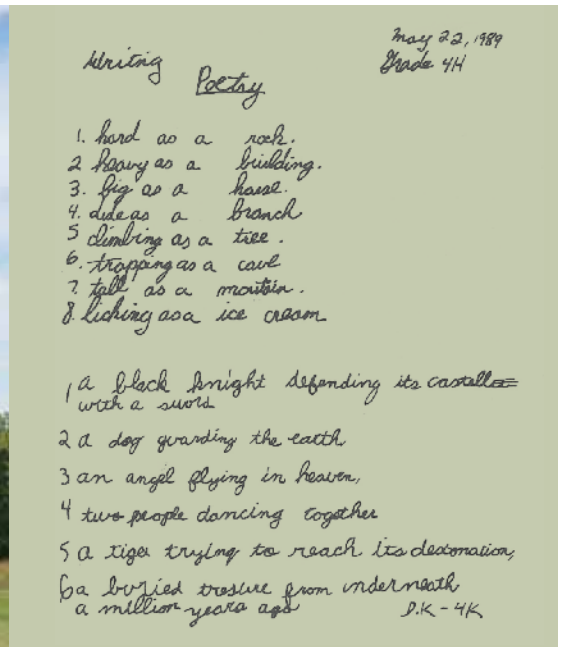 May 22, 1989
Writing Grade 4H
Poetry
1. hard as a rock.
2 heavy as a building.
3. big as a house.
4. as a branch
5 climbing as a tree.
6. trapping as a cave
7. tall as a moutain.
8. licking as a ice cream
1 a black knight defending its
with a sword
2 a dog guarding the earth
3 an angel flying in heaven,
4 two people dancing together
5 a tiger trying to reach its destonation,
6 a buried tresure from underneath
a million years ago
D.K - 4K